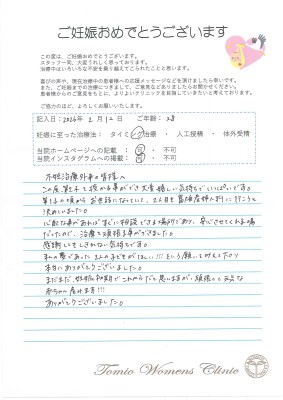 ご妊娠おめでとうございます
この度は、ご妊娠おめでとうございます。
スタッフ一同、大変うれしく思っております。
治療中はいろいろな不安を乗り越えてこられたことと思います。
喜びの声や、現在治療中の患者様への応援メッセージなどを頂けましたら幸いです。
また、妊娠までの治療につきまして、ご意見などありましたらお聞かせください。
患者様からのご意見をもとに、よりよいクリニックを目指していきたいと考えております。
ご協力のほど、よろしくお願いいたします。
記入日：2026年2月12日 ご年齢：28
妊娠に至った治療法：タイミング治療・人工授精・体外受精
当院ホームページへの記載：可・不可
当院インスタグラムへの掲載：可・不可
不妊治療外来の皆様へ
この度、第2子を授かる事ができ大変嬉しい気持ちでいっぱいです。
第1子の頃からお世話になっていて、2人目も冨原産婦人科に行こうと
決めていました。
心配な事があればすぐに相談できる場所であり、安心させてくれる場
だったので、治療を頑張る事ができました。
感謝してもしきれない気持ちです。
私の夢であった2人の子どもがほしい!!!という願いを叶えて下さり
本当にありがとうございました。
まだまだ、妊娠初期でこれからだと思いますが、頑張って元気な
赤ちゃん産みます!!!
ありがとうございました。
Tomio Womens Clinic